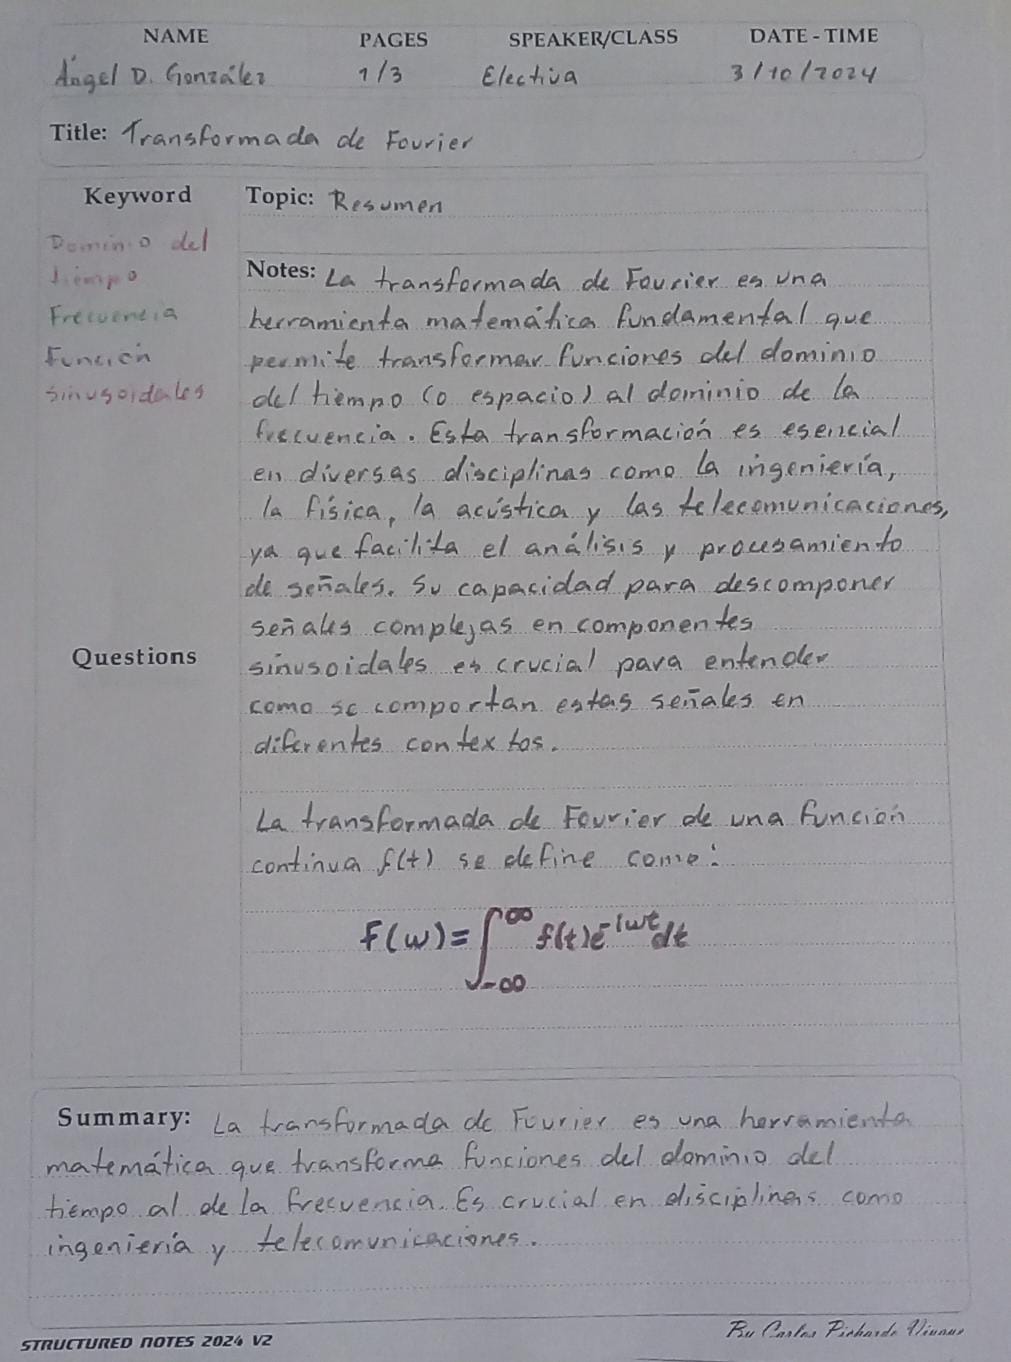 NAME PAGES SPEAKER/CLASS DATE-TIME
Ángel D. González 1/3 Electiva 3/10/2024
Title: Transformada de Fourier
Keyword
Dominio del
tiempo
Frecuencia
Función
sinusoidales
Questions
Topic: Resumen
Notes: La transformada de Fourier es una
herramienta matemática fundamental que
permite transformar funciones del dominio
del tiempo (o espacio) al dominio de la
frecuencia. Esta transformación es esencial
en diversas disciplinas como la ingeniería,
la física, la acústica y las telecomunicaciones,
ya que facilita el análisis y procesamiento
de señales. Su capacidad para descomponer
señales complejas en componentes
sinusoidales es crucial para entender
como se comportan estas señales en
diferentes contextos.
La transformada de Fourier de una función
continua f(t) se define como:
F(w)=∫_{-∞}^{∞} f(t)e^{-iwt}dt
Summary: La transformada de Fourier es una herramienta
matemática que transforma funciones del dominio del
tiempo al de la frecuencia. Es crucial en disciplinas como
ingeniería y telecomunicaciones.
STRUCTURED NOTES 2024 V2
By Carlos Pichardo Viuque